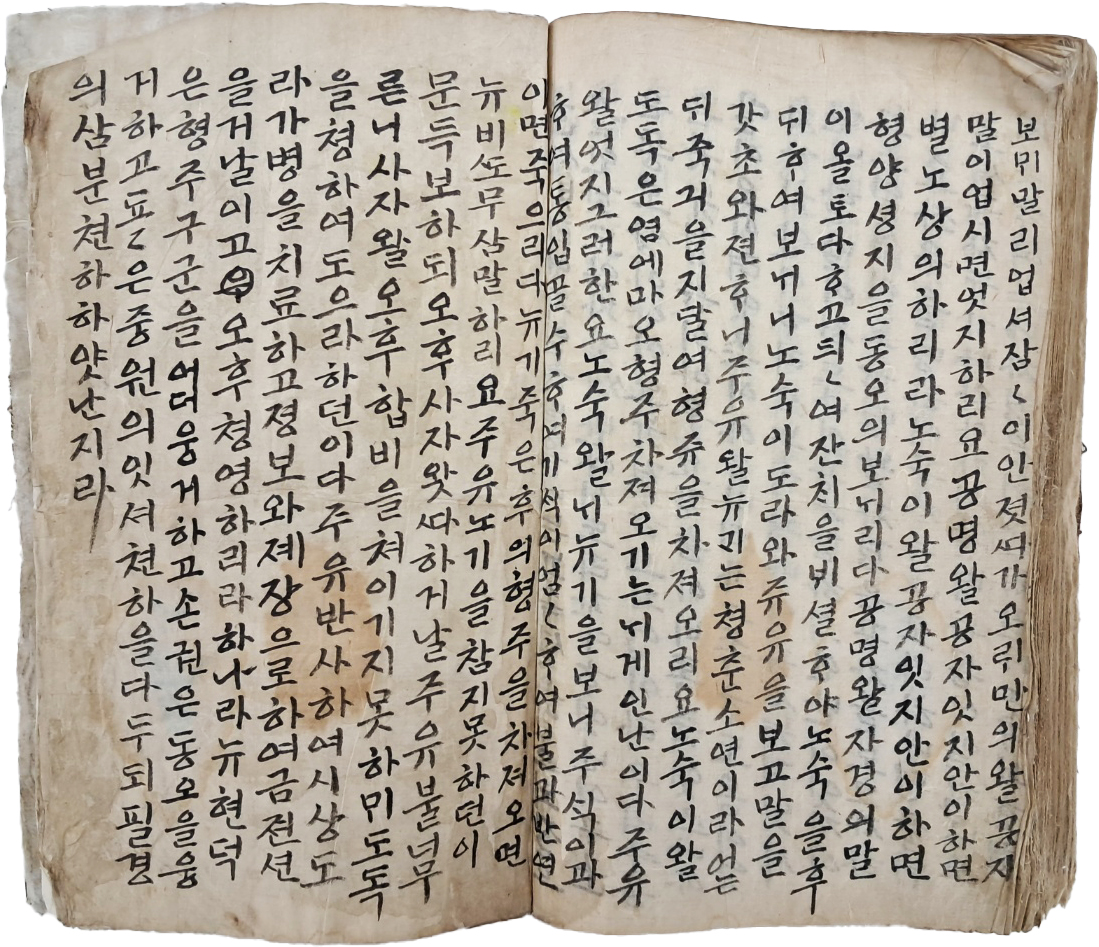 보뮈말리업셔잠〻이안젓ᄯᅡ가오뤼만의왈공ᄌᆞ
말이업시면엇지하리요공명왈공자잇지안이하면
별노상의하리라노숙이왈공자잇지안이하면
형양셩지을동오의보ᄂᆡ리다공명왈자경의말
이올토다ᄒᆞ고듸〻여잔치을ᄇᆡ셜ᄒᆞ야노숙을후
ᄃᆡᄒᆞ여보ᄂᆡ니노숙이도라와쥬유을보고말을
갓초와젼ᄒᆞ니주유왈뉴긔는쳥춘소연이라언
ᄃᆡ죽긔을지달여형쥬을차져오리요노숙이왈
도독은염에마오형주차져오기는ᄂᆡ게인난이다주유
왈엇지그러한요노숙왈ᄂᆡ뉴기을보니주식이과
ᄒᆞ여통입골수ᄒᆞ여기ᄉᆡᆨ이엄〻ᄒᆞ여불과반연
이면죽으리다뉴기죽은후의형주을차져오면
뉴비ᄯᅩ무삼말하리요주유노기을참지못하던이
문득보하되오후사자왓ᄯᅡ하거날주유불너무
른니사자왈오후합비을쳐이기지못하ᄆᆡ도독
을쳥하여도으라하던이다주유반사하여시상도
라가병을치료하고졍보와졔장으로하여금젼션
을거날이고오후쳥영하리라하니라뉴현덕
은형주구군을어더웅거하고손권은동오을웅
거하고됴〻은중원의잇셔쳔하을다두되필경
의삼분쳔하하얏난지라